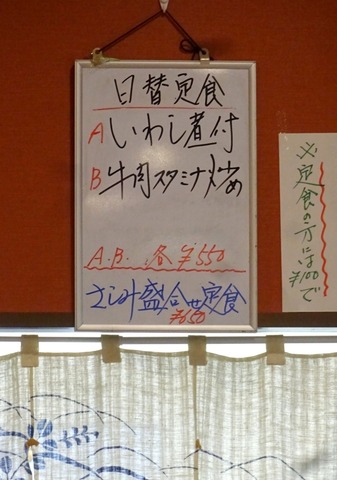 日替定食
A いわし煮付
B 牛肉スタミナ炒め
A.B. 各¥550
さしみ盛合せ定食
¥650
※定食の方には
¥100で